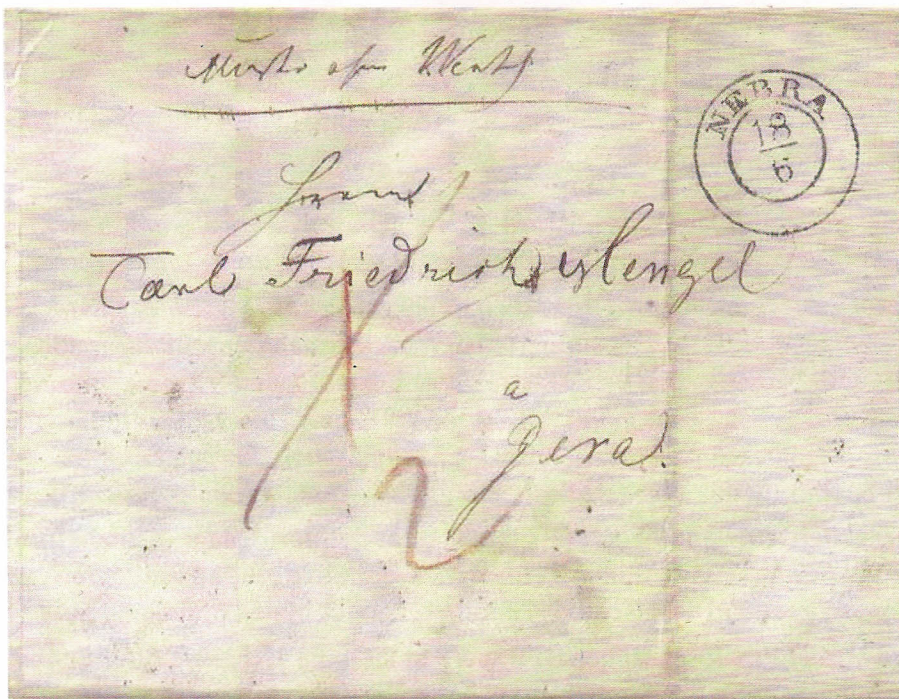 Muster ohne Werth
NEBRA
18
6
Herrn
Carl Friedrich Mengel
a
Gera.
1
2